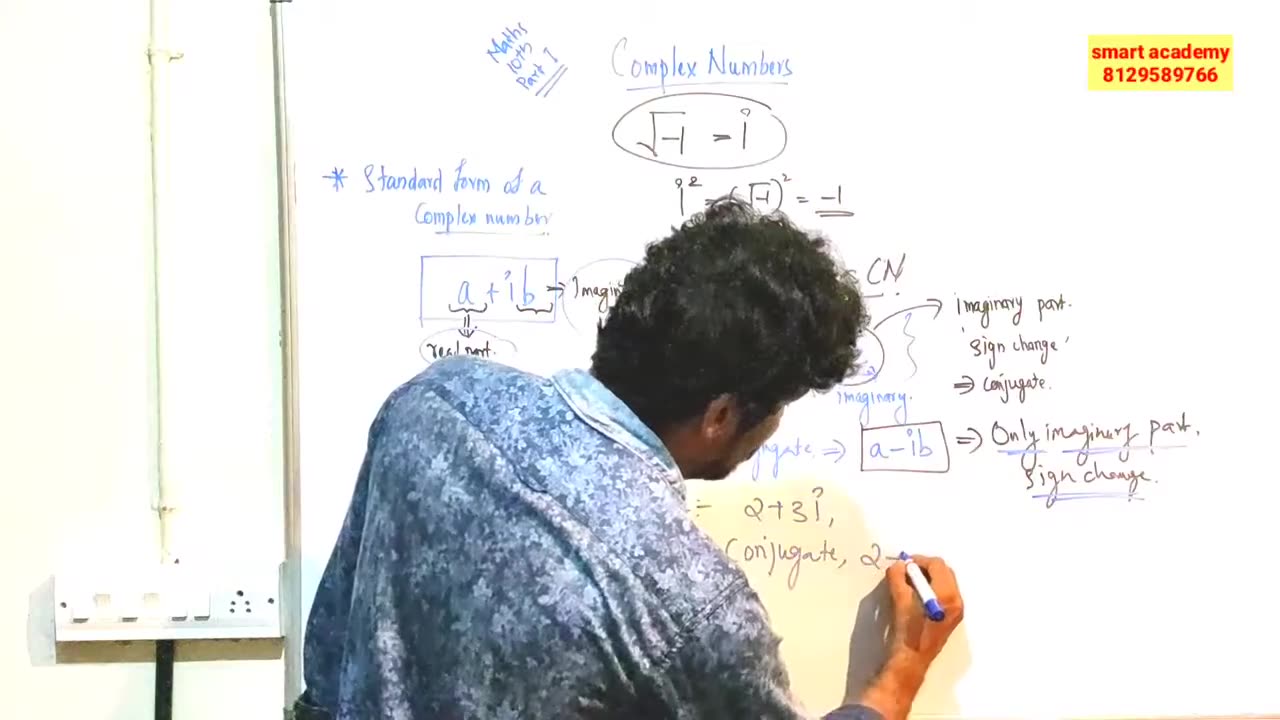 smart academy
8129589766
Maths
10th
Part 1
Complex Numbers
√-1 = i
i² = (√-1)² = -1
* Standard form of a
Complex number
a + ib
real part.
CN
imaginary part.
'sign change'
⇒ Conjugate.
imaginary.
⇒ a - ib ⇒ Only imaginary part.
sign change.
2+3i,
Conjugate, 2 -